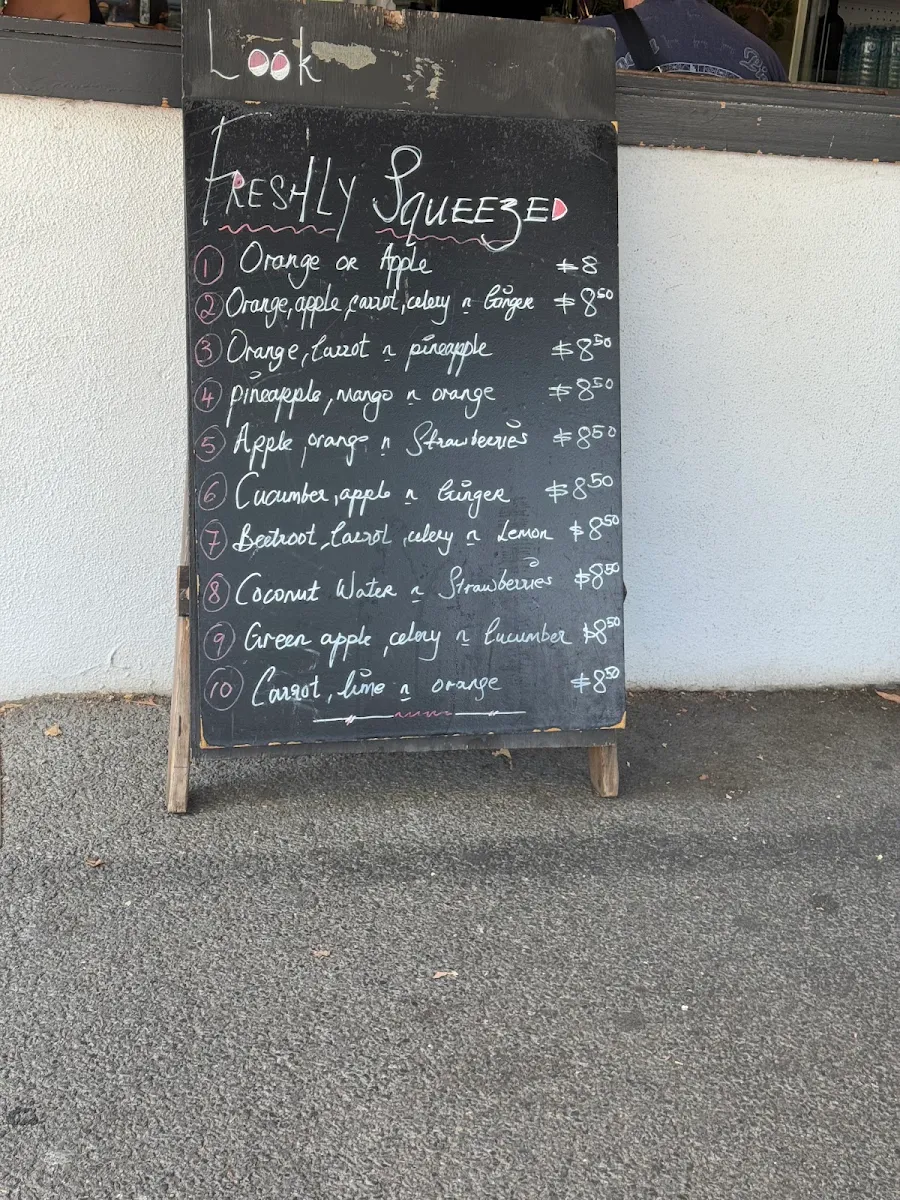 Look
FRESHLY SQUEEZED
1 Orange or Apple $8
2 Orange, apple, carrot, celery n Ginger $8.50
3 Orange, Carrot n pineapple $8.50
4 pineapple, mango n orange $8.50
5 Apple, orange n Strawberries $8.50
6 Cucumber, apple n Ginger $8.50
7 Beetroot, Carrot, celery n Lemon $8.50
8 Coconut Water n Strawberries $8.50
9 Green apple, celery n Cucumber $8.50
10 Carrot, lime n orange $8.50